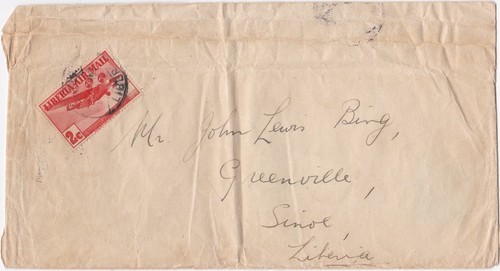 LIBERIA AIR MAIL
2c
Mr. John Lewis Bing,
Greenville,
Sinoe,
Liberia